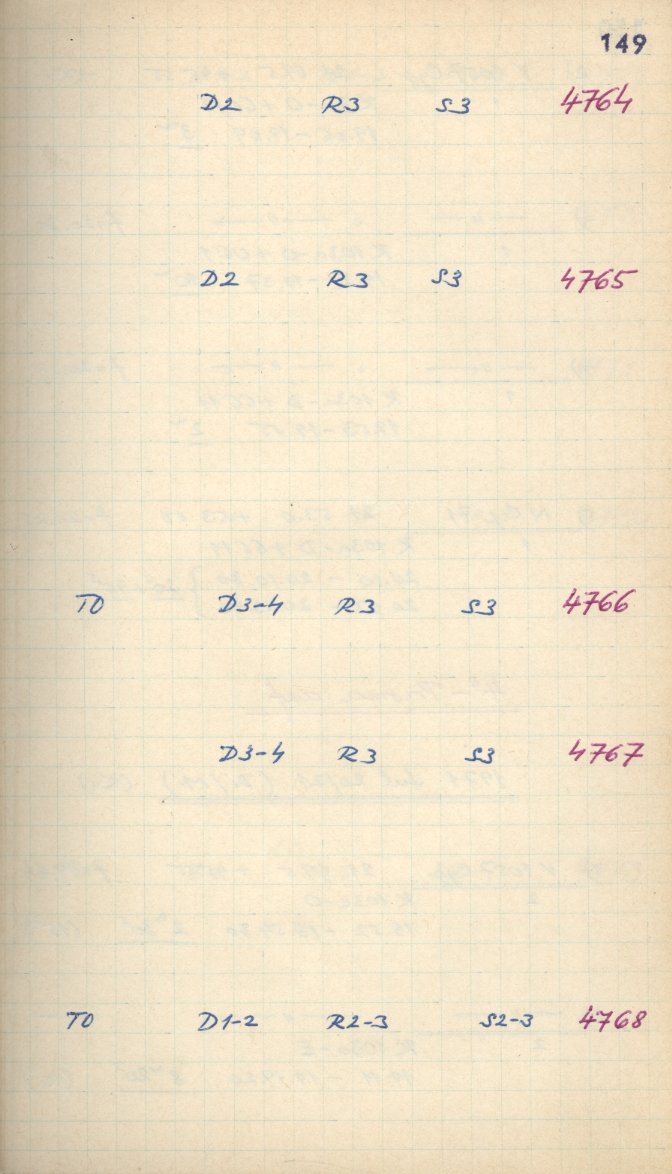 149
D2 R3 S3 4764
D2 R3 S3 4765
TO D3-4 R3 S3 4766
D3-4 R3 S3 4767
TO D1-2 R2-3 S2-3 4768